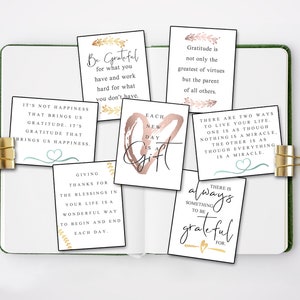 Be Grateful
for what you
have and work
hard for what
you don't have.
Gratitude is
not only the
greatest of virtues
but the parent
of all others.
IT'S NOT HAPPINESS
THAT BRINGS US
GRATITUDE. IT'S
GRATITUDE THAT
BRINGS US
HAPPINESS.
EACH
NEW
DAY
IS A
Gift
THERE ARE TWO WAYS
TO LIVE YOUR LIFE.
ONE IS AS THOUGH
NOTHING IS A MIRACLE,
THE OTHER IS AS
THOUGH EVERYTHING
IS A MIRACLE.
GIVING
THANKS FOR
THE BLESSINGS IN
YOUR LIFE IS A
WONDERFUL WAY
TO BEGIN AND END
EACH DAY.
THERE IS
always
SOMETHING
TO BE
grateful
FOR